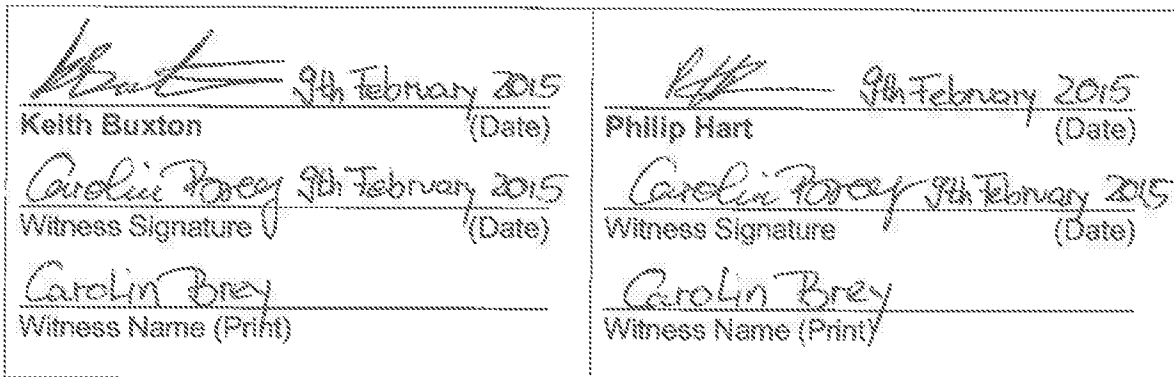 9th February 2015
Keith Buxton (Date)
Carolin Brey 9th February 2015
Witness Signature (Date)
Carolin Brey
Witness Name (Print)
9th February 2015
Philip Hart (Date)
Carolin Brey 9th February 2015
Witness Signature (Date)
Carolin Brey
Witness Name (Print)